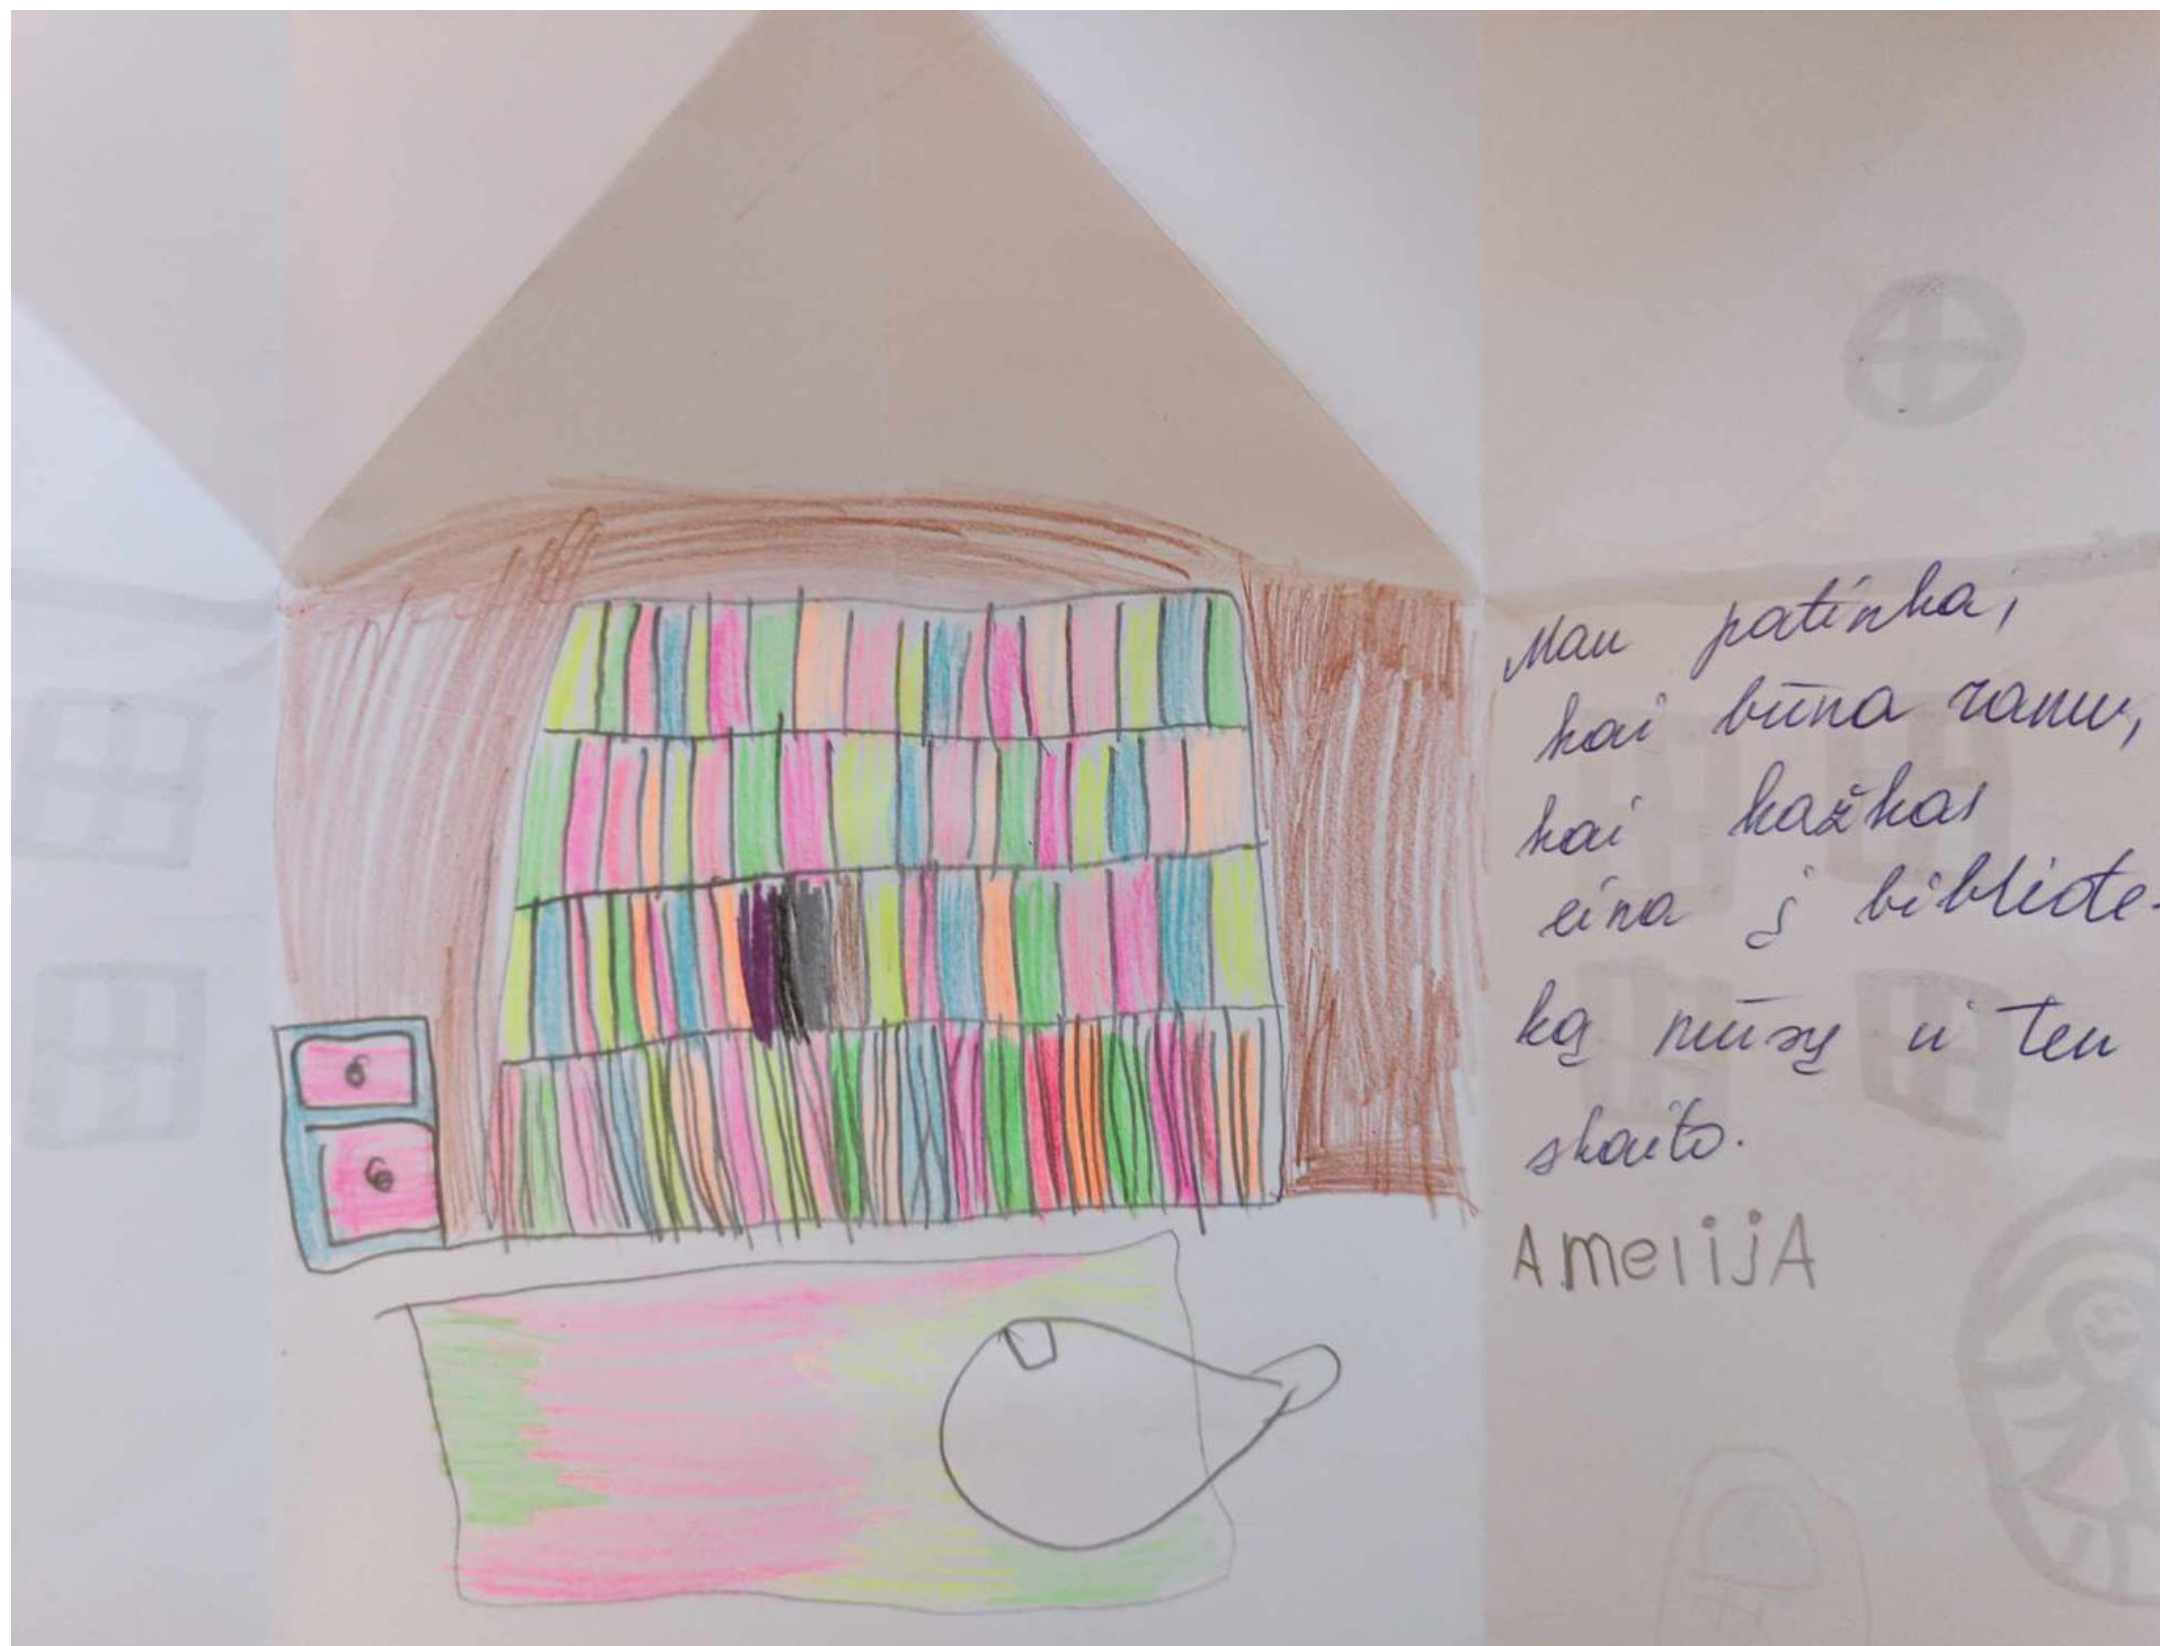 Man patinka,
kai būna ramu,
kai kažkas
eina į bibliote-
ką mūsų ir ten
skaito.
AmelijA